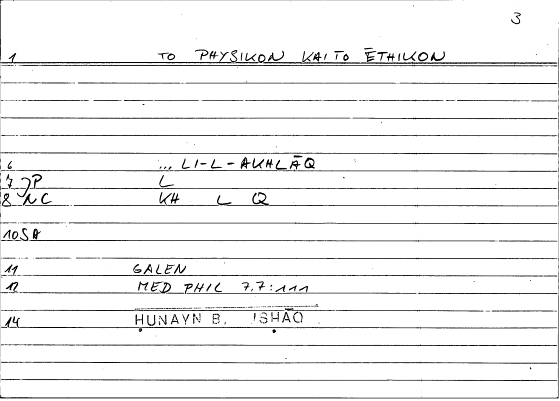 3
1 TO PHYSIKON KAI TO ĒTHIKON
6 ... LI-L-AKHLĀQ
7 JP L
8 NC KH L Q
10 SA
11 GALEN
12 MED PHIL 7.7:111
14 ḤUNAYN B. ISḤĀQ